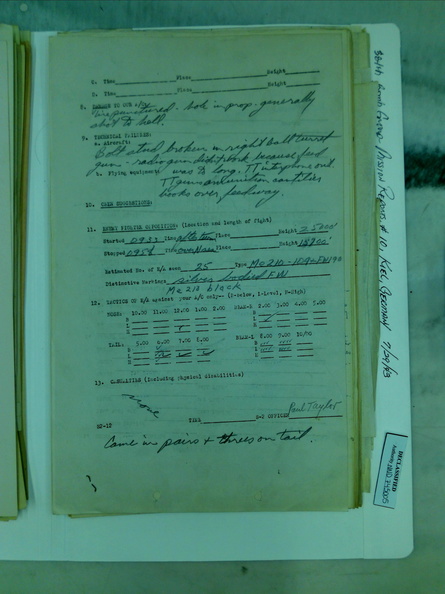 G. Time Place Height
H. Time Place Height
8. DAMAGE TO OUR A/C:
Tire punctured - hole in prop. generally
shot to hell.
9. TECHNICAL FAILURES:
a. Aircraft:
Bolt stud broken in right ball turret
gun - radio gun didn't work because feed
b. Flying equipment was too long. TT interphone out.
TT guns ammunition
over feedway.
10. 
11. ENEMY FIGHTER OPPOSITION: (location and length of fight)
Started 0933 Place Height 25000'
Stopped 0958 Place Height
Estimated No. of E/A seen 25 Type Me210-109-FW190
Distinctive Markings silver bodied FW
Me 210 black
12. LOCATION OF E/A against your A/C only- (B-below, L-Level, H-High)
NOSE: 10.00 11.00 12.00 1.00 2.00
2.00 3.00 4.00 5.00
TAIL: 5.00 6.00 7.00 8.00
8.00 9.00 10/00
13. CASUALTIES (including physical disabilities)
None
S-2 OFFICER Paul Taylor
Came in pairs + threes on tail.
Bomb Group Mission Reports #10, Kiel, Germany 7/29/43
DECLASSIFIED
Authority NND 745005